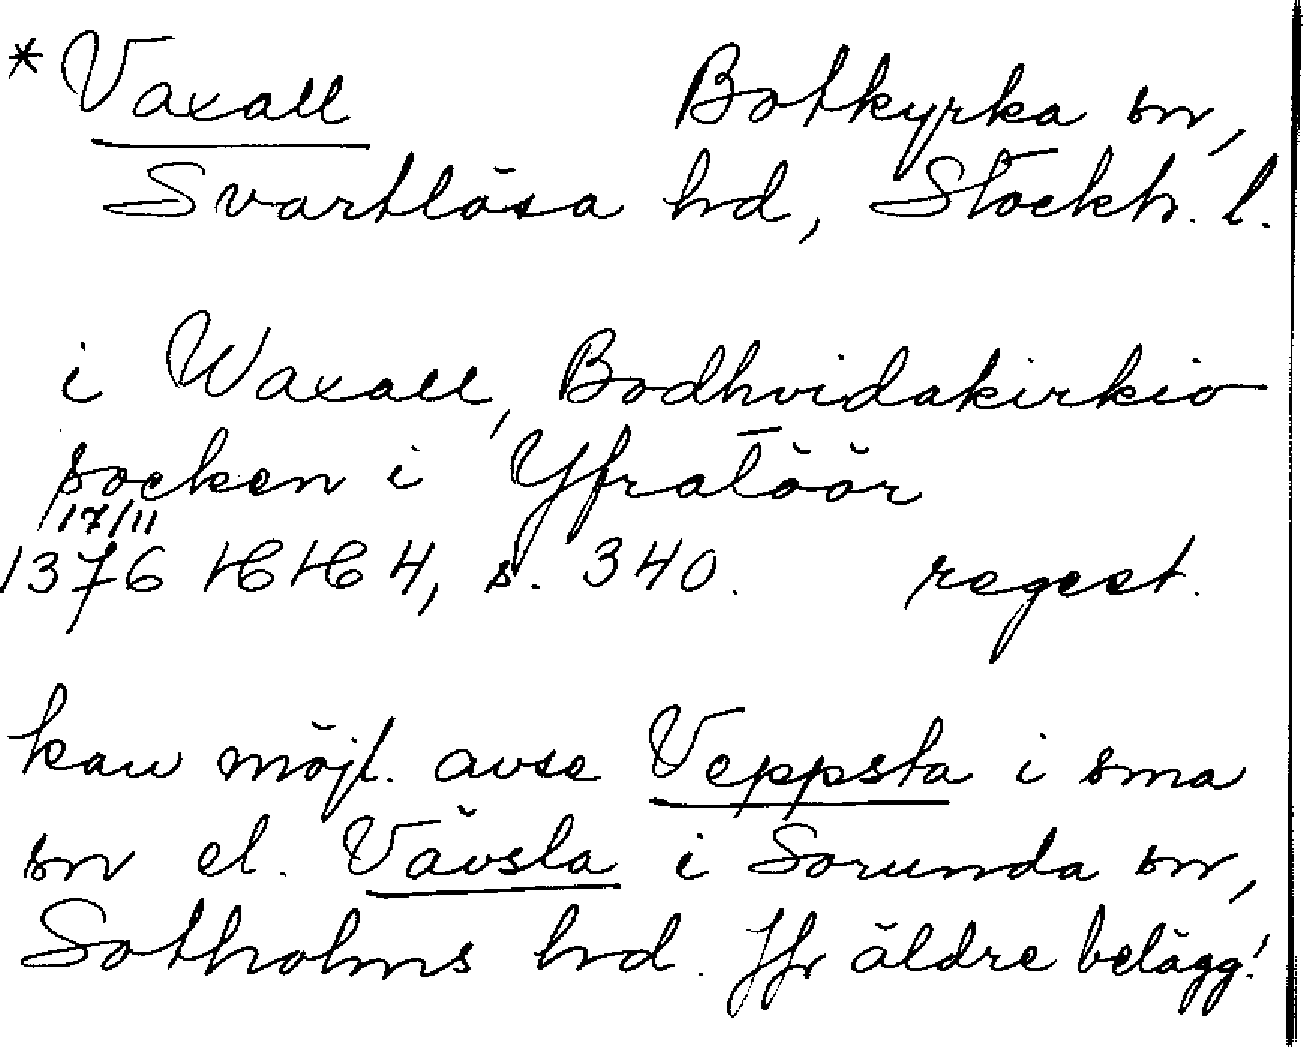 * Vaxall Botkyrka sn,
Svartlösa hd, Stockh. l.
i Waxall, Bodhvidakirkio
socken i Yfratöör
17/11
1376 HH 4, s. 340. regest.
kan möjl. avse Veppsta i sma
sn el. Vävsla i Sorunda sn,
Sotholms hd. Jfr äldre belägg!